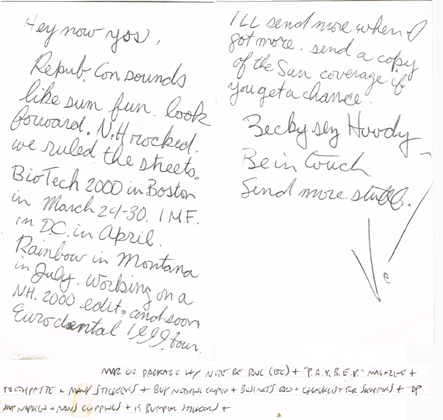 Hey now yos,
Repub. Con sounds
like sum fun. look
forward. N.H rocked.
we ruled the streets.
BioTech 2000 in Boston
in March 24-30. IMF.
in DC. in April.
Rainbow in Montana
in July. working on a
NH. 2000 edit. and soon
tour.
ILL send more when I
got more. send a copy
of the Sun coverage if
you get a chance.
Becky sey Howdy
Be in touch
Send more stuff.
PACKAGE W/ NOTE RE RNC + "B.A.K.B.E.R." MAGAZINE +
TOOTHPASTE + MANY STICKERS + BUY NOTHING + BUSINESS + CHECKLIST FOR +
NAPKIN + CLIPPINGS + 15 BUMPER STICKERS +